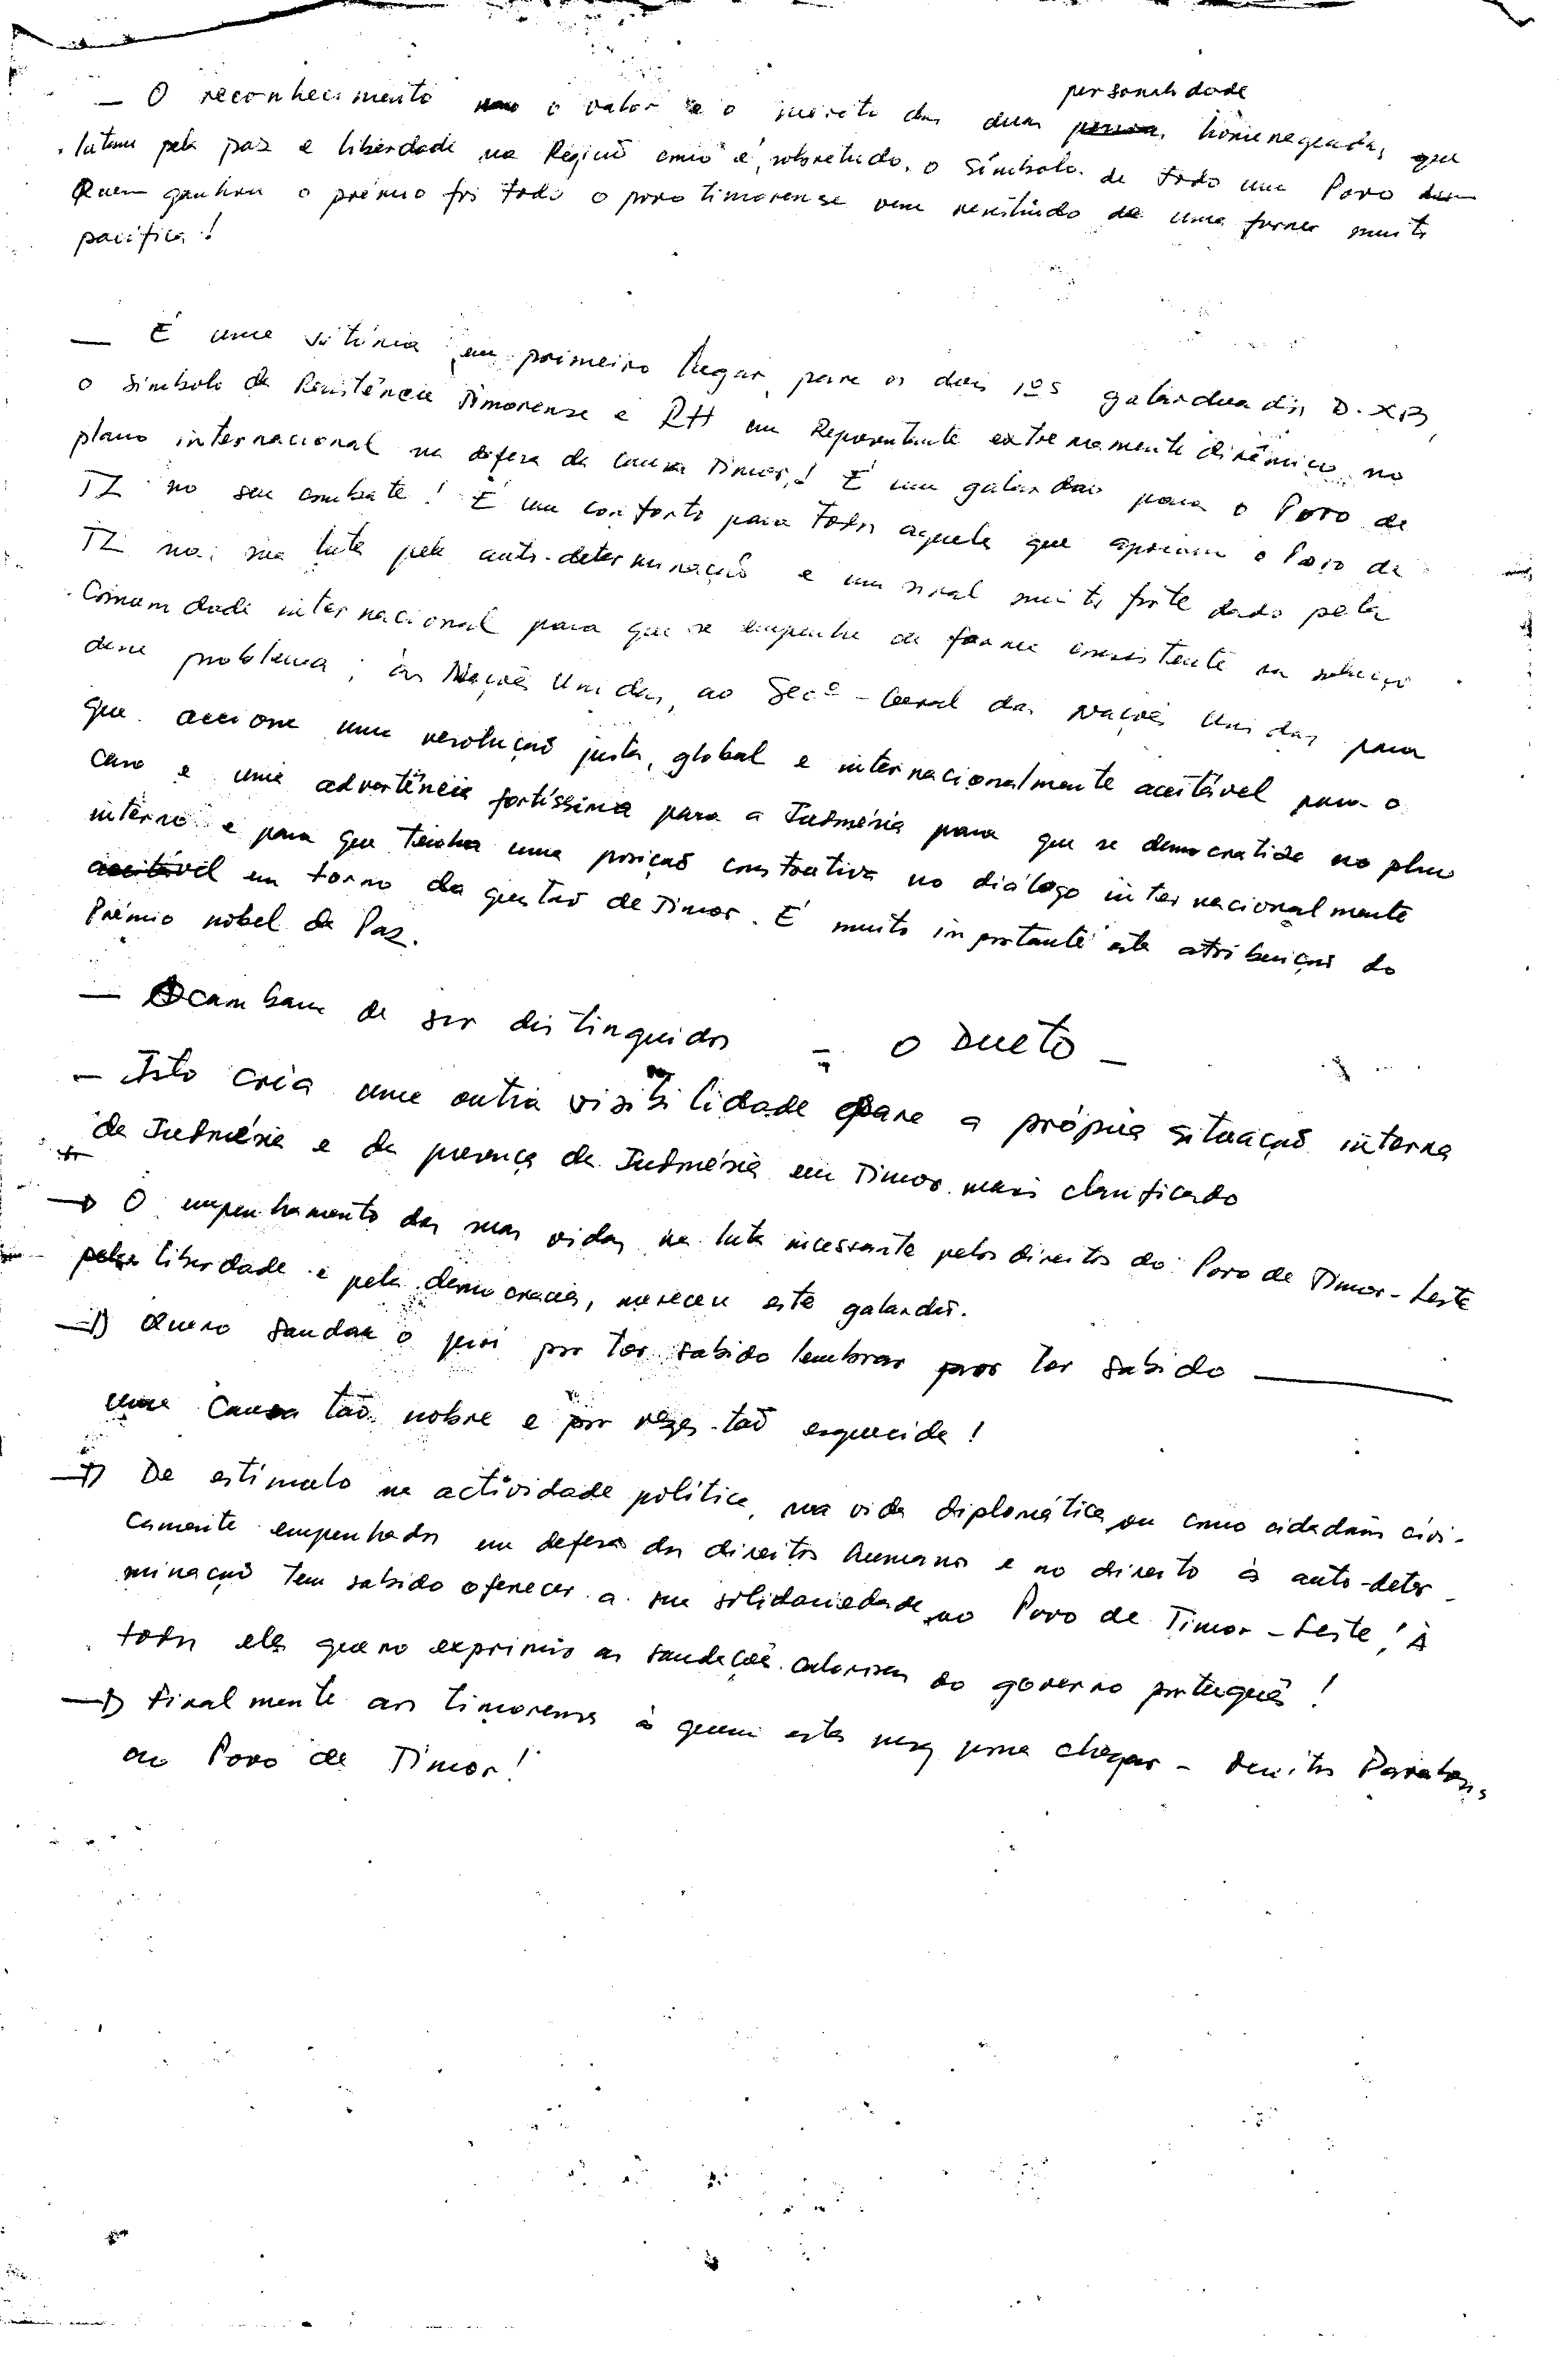 personalidade
— O reconhecimento o valor e o mérito das duas homenageadas, que
lutam pela paz e liberdade na Região como é, sobretudo, o símbolo de todo um Povo
Quem ganhou o prémio foi todo o povo timorense vem resistindo de uma forma muito
pacífica!
— É uma vitória em primeiro lugar, para os dois 1ºs galardoados, D. XB,
o símbolo da Resistência Timorense e RH um Representante extremamente dinâmico no
plano internacional na defesa da causa Timor! É um galardão para o Povo de
TL no seu combate! É um conforto para todos aqueles que apoiam o Povo de
TL na sua luta pela auto-determinação e um sinal muito forte dado pela
Comunidade internacional para que se empenhe de forma consistente na solução
desse problema; às Nações Unidas, ao Secº-Geral das Nações Unidas para
que accione uma resolução justa, global e internacionalmente aceitável para o
caso e uma advertência fortíssima para a Indonésia para que se democratize no plano
interno e para que tenha uma posição construtiva no diálogo internacionalmente
aceitável em torno da questão de Timor. É muito importante esta atribuição do
Prémio nobel da Paz.
— Acambam de ser distinguidos = O Dueto —
— Isto cria uma outra visibilidade para a própria situação interna
da Indonésia e da presença da Indonésia em Timor mais clarificado
→ O empenhamento das suas vidas na luta incessante pelos direitos do Povo de Timor-Leste
pela liberdade e pela democracia, mereceu este galardão.
→ Quero saudar o juri por ter sabido lembrar por ter sabido ———
uma causa tão nobre e por vezes tão esquecida!
→ De estímulo na actividade política, na vida diplomática ou como cidadãos civi-
camente empenhados em defesa dos direitos humanos e no direito à auto-deter-
minação tem sabido oferecer a sua solidariedade ao Povo de Timor-Leste! À
todos eles quero exprimir as saudações calorosas do governo português!
→ Finalmente aos timorenses à quem esta possa chegar – Muitos Parabéns
ao Povo de Timor!